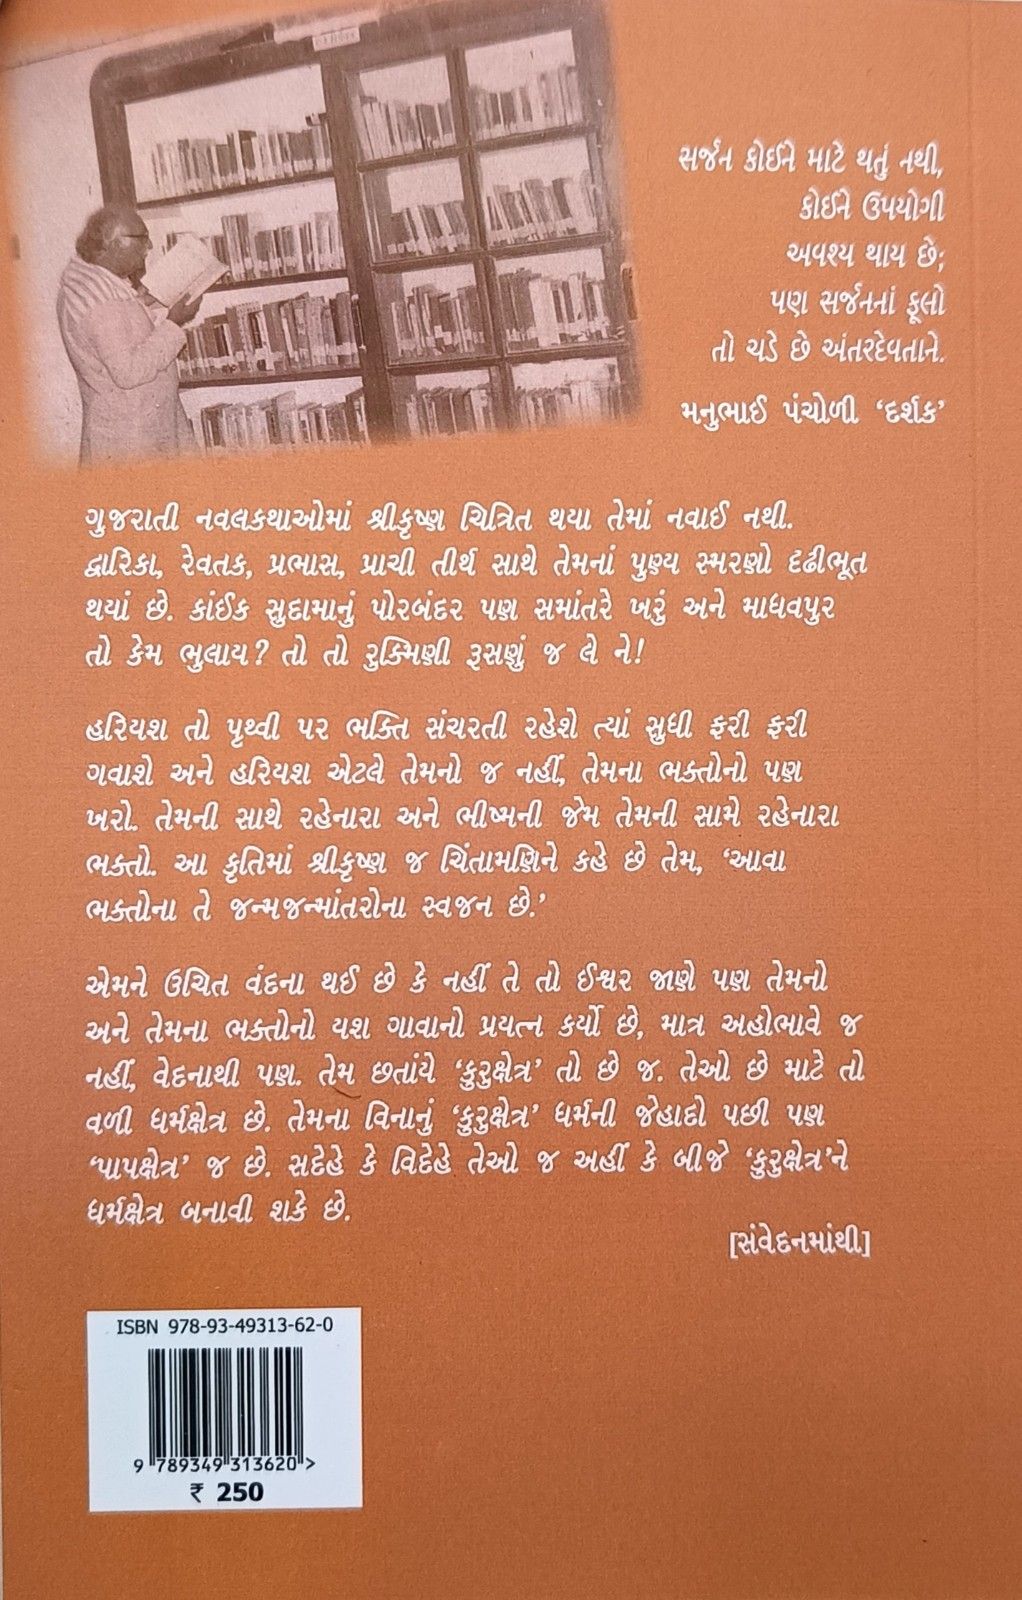 સર્જન કોઈને માટે થતું નથી,
કોઈને ઉપયોગી
અવશ્ય થાય છે;
પણ સર્જનનાં ફૂલો
તો ચડે છે અંતરદેવતાને.
મનુભાઈ પંચોળી ‘દર્શક’
ગુજરાતી નવલકથાઓમાં શ્રીકૃષ્ણ ચિત્રિત થયા તેમાં નવાઈ નથી.
દ્વારિકા, રેવતક, પ્રભાસ, પ્રાચી તીર્થ સાથે તેમનાં પુણ્ય સ્મરણો દઢીભૂત
થયાં છે. કાંઈક સુદામાનું પોરબંદર પણ સમાંતરે ખરું અને માધવપુર
તો કેમ ભુલાય? તો તો રુક્મિણી રૂસણું જ લે ને!
હરિયશ તો પૃથ્વી પર ભક્તિ સંચરતી રહેશે ત્યાં સુધી ફરી ફરી
ગવાશે અને હરિયશ એટલે તેમનો જ નહીં, તેમના ભક્તોનો પણ
ખરો. તેમની સાથે રહેનારા અને ભીષ્મની જેમ તેમની સામે રહેનારા
ભક્તો. આ કૃતિમાં શ્રીકૃષ્ણ જ ચિંતામણિને કહે છે તેમ, ‘આવા
ભક્તોના તે જન્મજન્માંતરોના સ્વજન છે.’
એમને ઉચિત વંદના થઈ છે કે નહીં તે તો ઈશ્વર જાણે પણ તેમનો
અને તેમના ભક્તોનો યશ ગાવાનો પ્રયત્ન કર્યો છે, માત્ર અહોભાવે જ
નહીં, વેદનાથી પણ. તેમ છતાંયે ‘કુરુક્ષેત્ર’ તો છે જ. તેઓ છે માટે તો
વળી ધર્મક્ષેત્ર છે. તેમના વિનાનું ‘કુરુક્ષેત્ર’ ધર્મની જેહાદો પછી પણ
‘પાપક્ષેત્ર’ જ છે. સદેહે કે વિદેહે તેઓ જ અહીં કે બીજે ‘કુરુક્ષેત્ર’ને
ધર્મક્ષેત્ર બનાવી શકે છે.
[સંવેદનમાંથી]
ISBN 978-93-49313-62-0
9 789349 313620 >
₹ 250